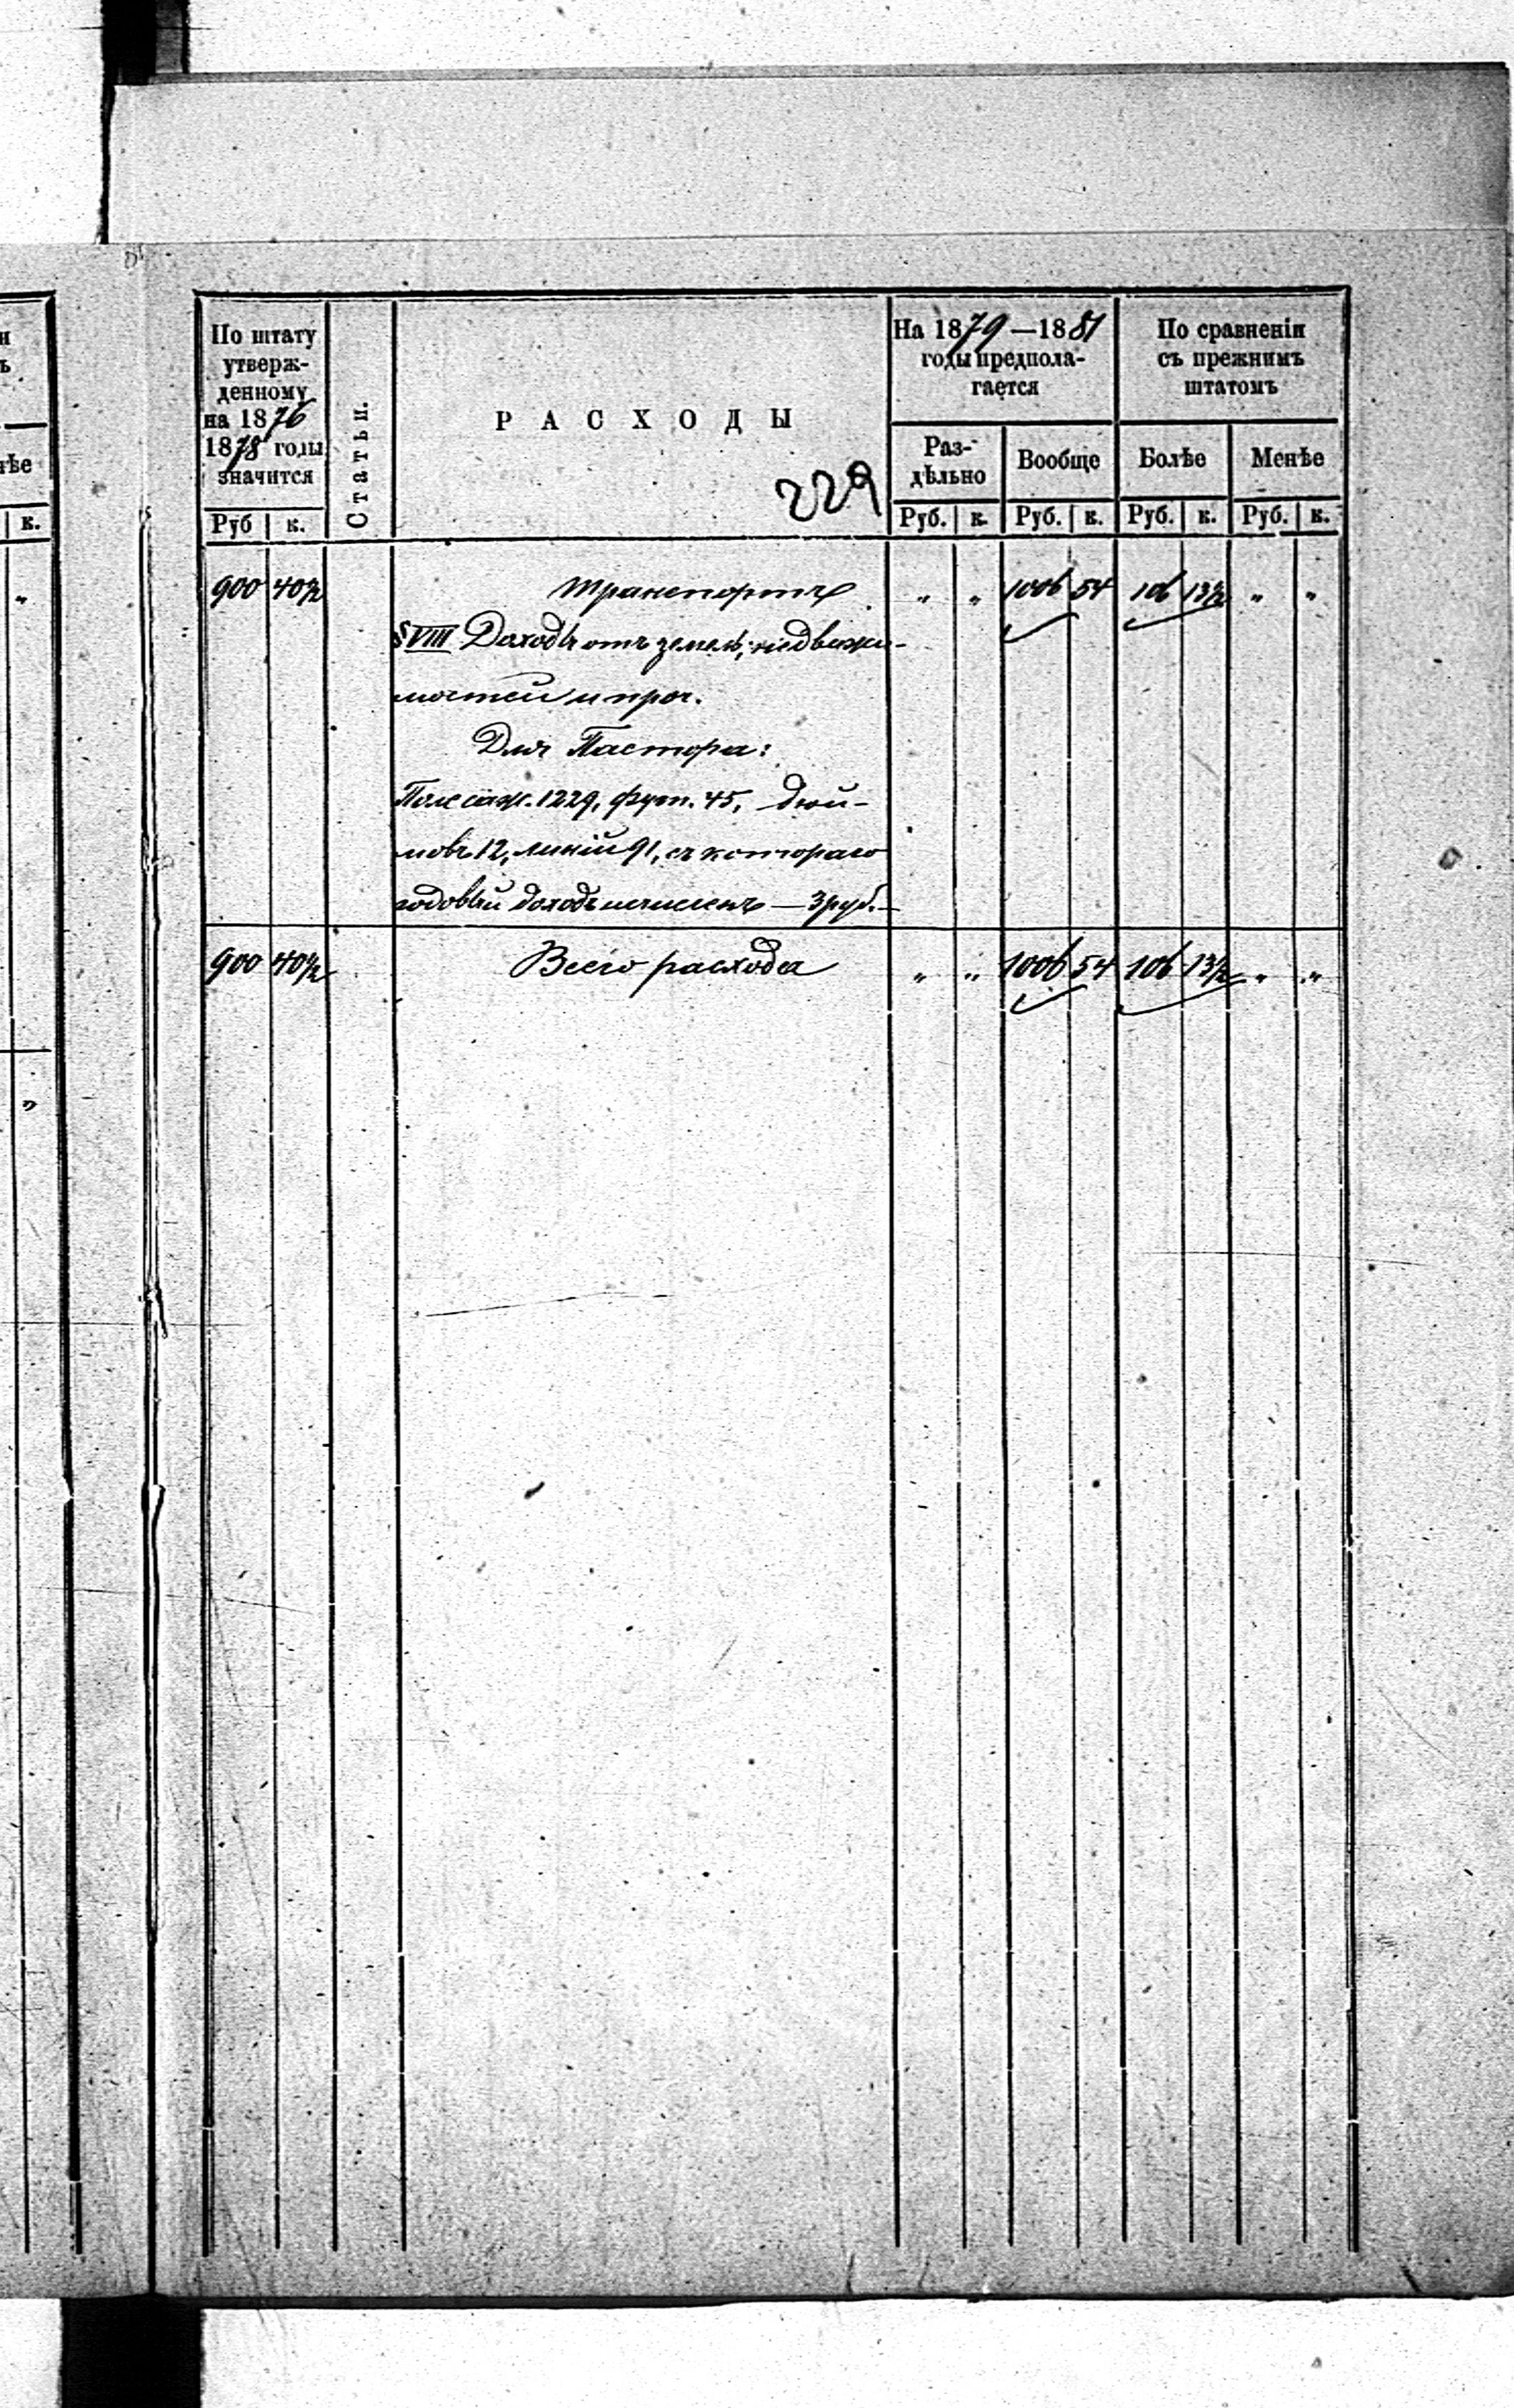 По штату
утверж-
денному
на 1876
1878 годы
значится
Руб к.
Статьи.
РАСХОДЫ
229
На 1879—1881
годы предпола-
гается
Раз-
дѣльно
Вообще
Руб. к. Руб. к.
По сравненіи
съ прежнимъ
штатомъ
Болѣе Менѣе
Руб. к. Руб. к.
900 40½ Транспортъ " " 1006 54 106 13½ " "
§ VIII Доходы отъ земель, недвижи-
мостей и проч.
Для Пастора:
Поле саж. 1229, фут. 45, дюй-
мовъ 12, линій 91, съ котораго
годовый доходъ исчисленъ — 3 руб. —
900 40½ Всего расхода " " 1006 54 106 13½ " "